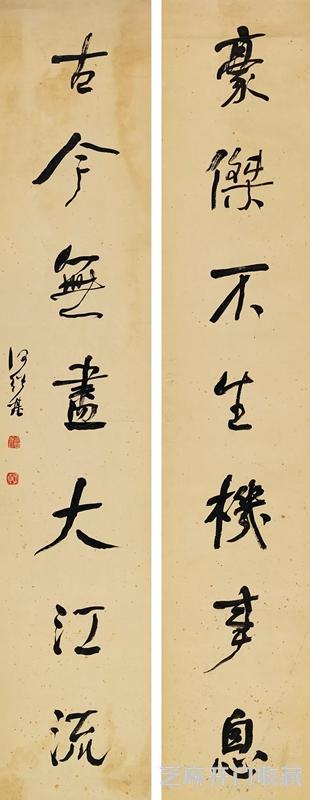 豪傑不生機事息
古今無盡大江流
何紹基
芝麻开门收藏